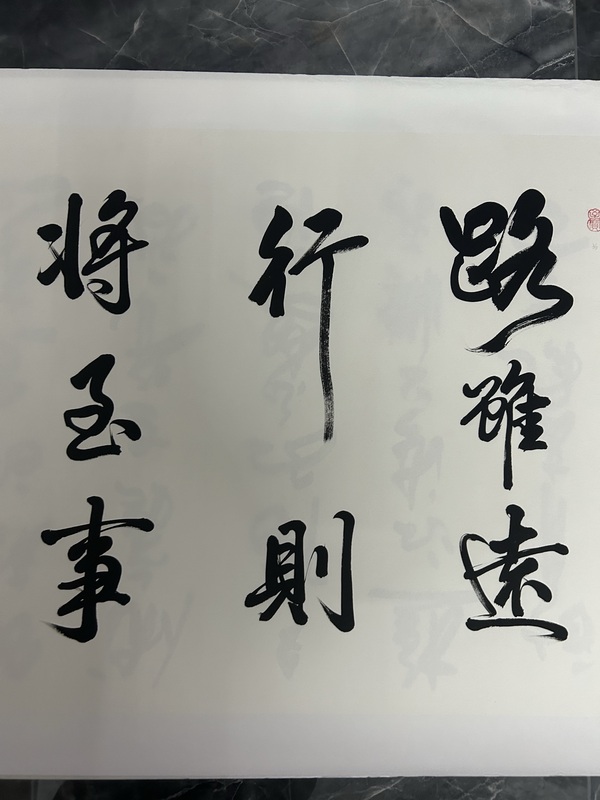 路雖遠
行則
将至事